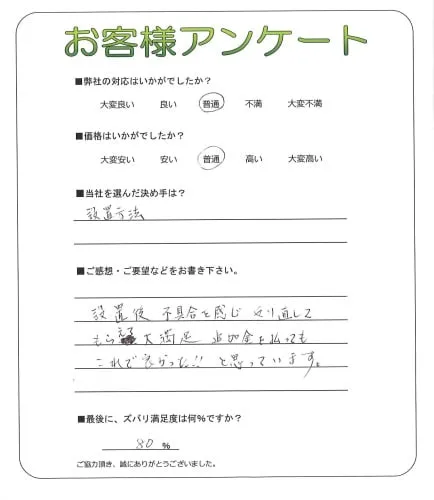 お客様アンケート
■弊社の対応はいかがでしたか？
大変良い 良い 普通 不満 大変不満
■価格はいかがでしたか？
大変安い 安い 普通 高い 大変高い
■当社を選んだ決め手は？
設置方法
■ご感想・ご要望などをお書き下さい。
設置後 不具合を感じ やり直して
もらえて 大満足 追加金を払っても
これで良かった!! と思っています。
■最後に、ズバリ満足度は何%ですか？
80 %
ご協力頂き、誠にありがとうございました。